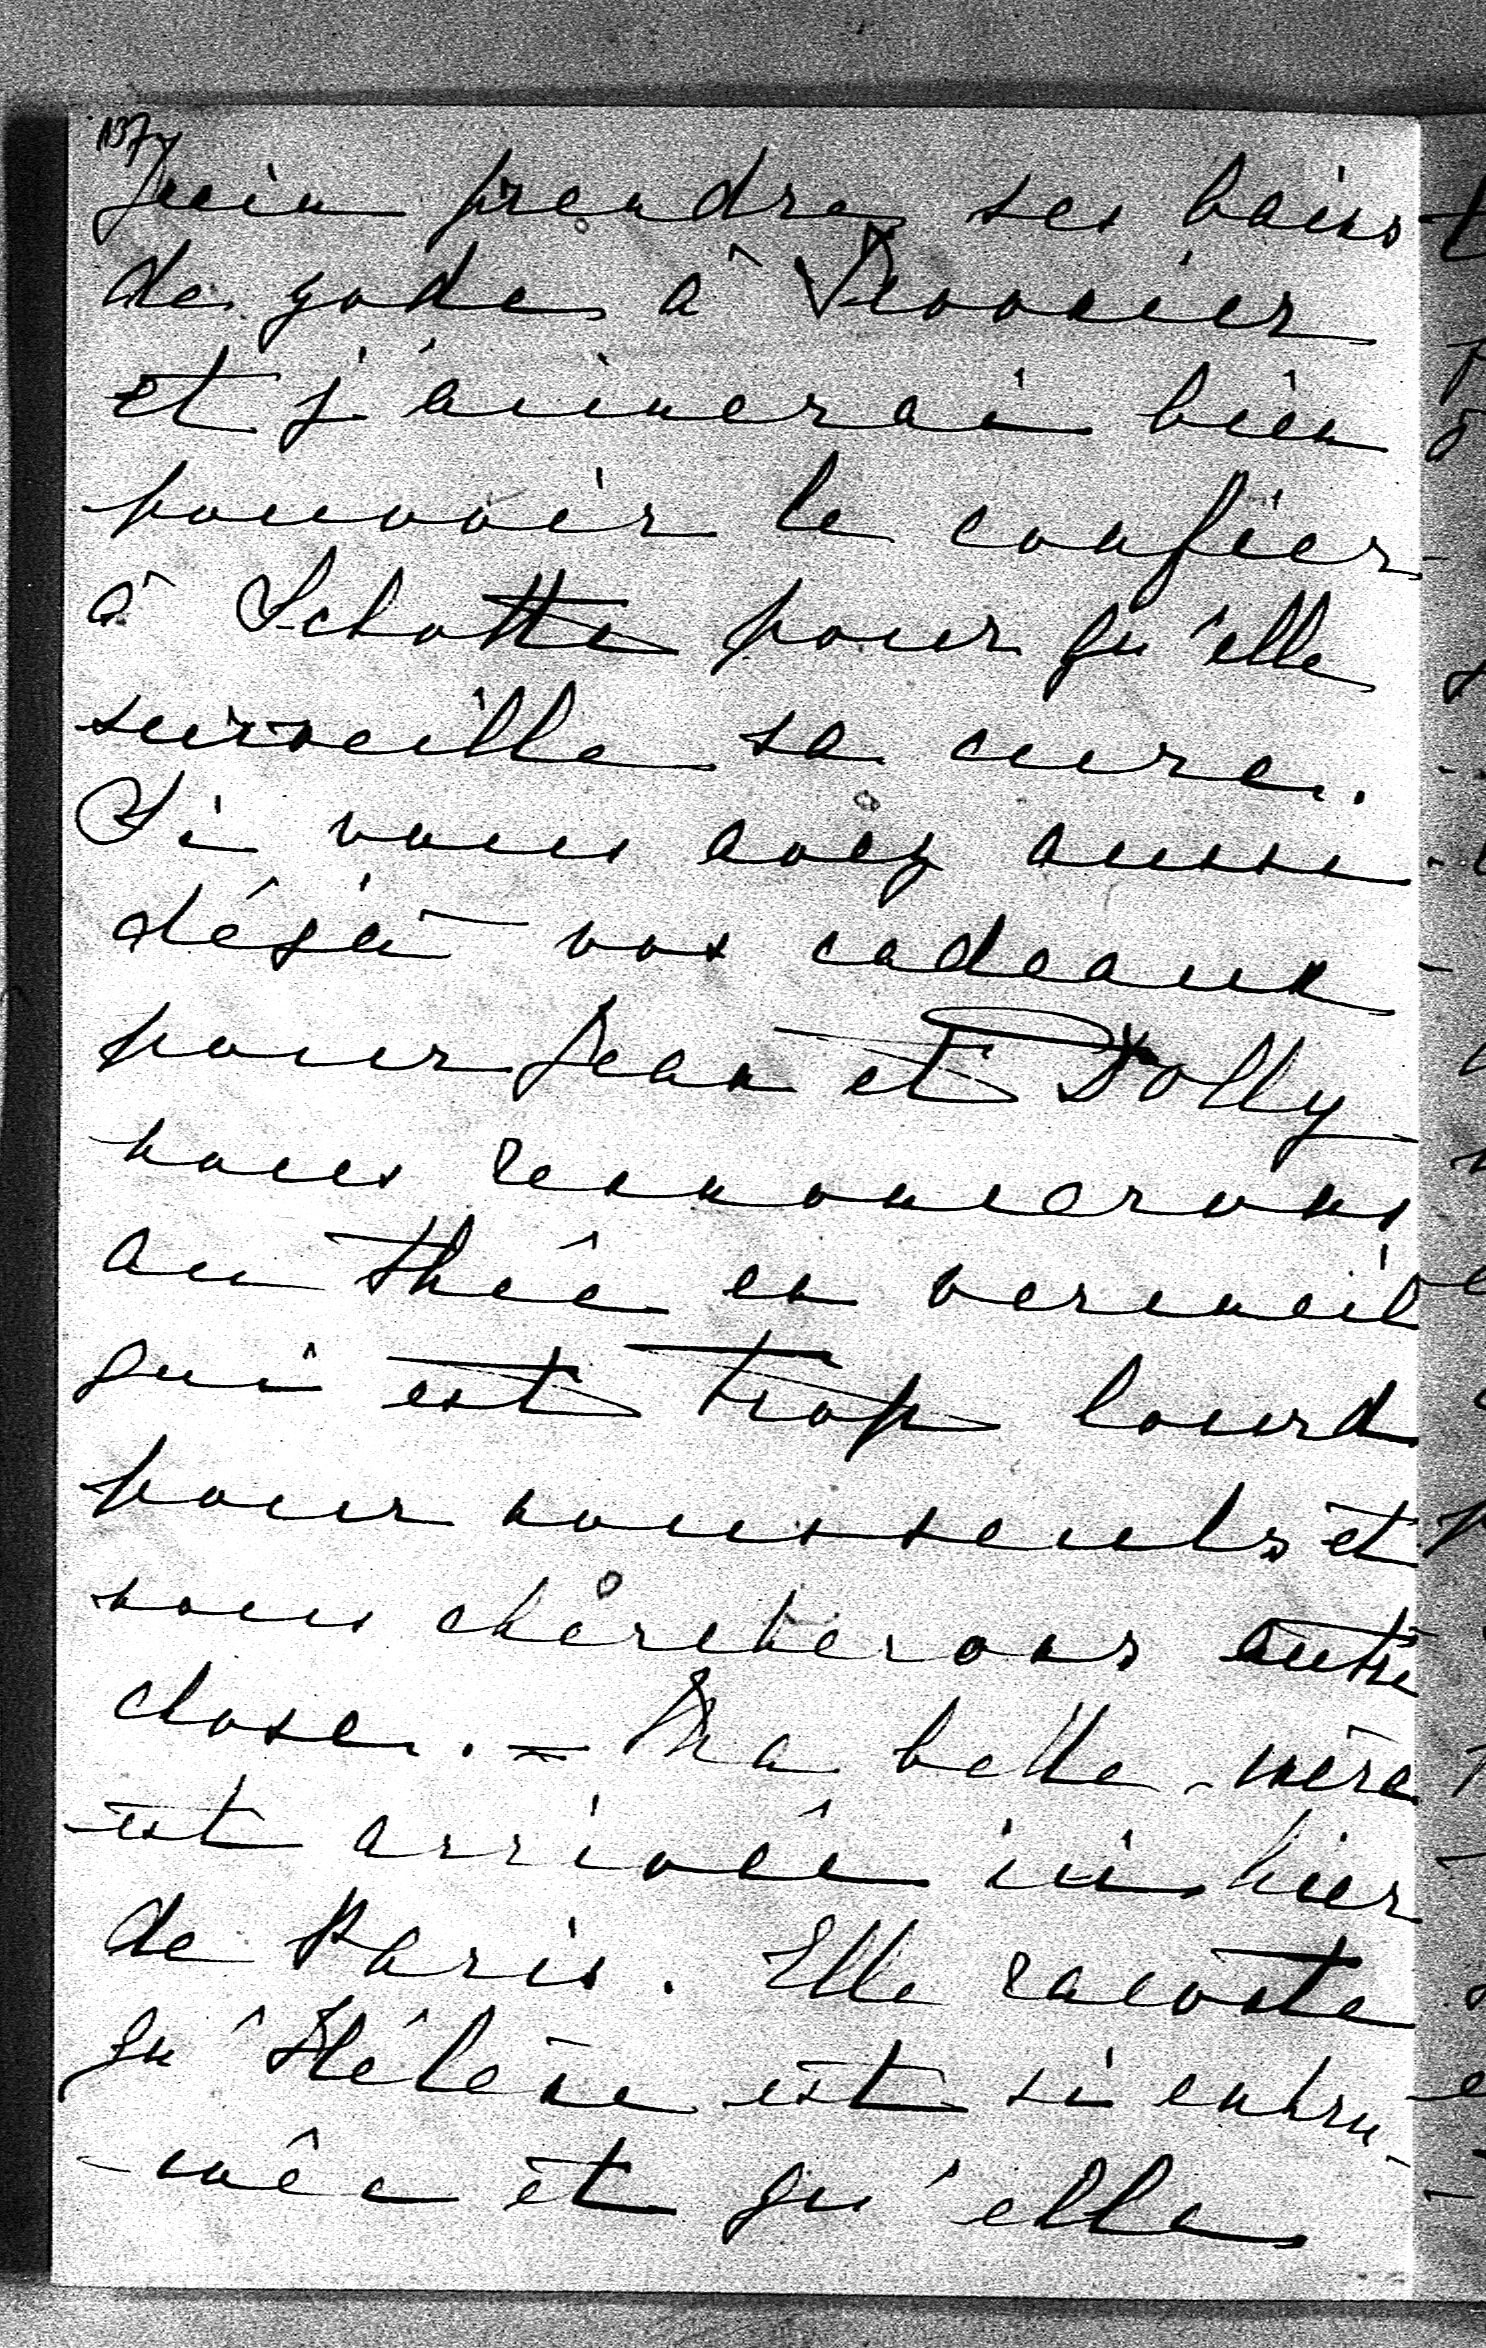 137
juin prendre ses bains
de yode à
et j'aimerai bien
pouvoir le confier
à Schotte pour qu'elle
surveille sa cure.
Si vous avez aussi
déjà vos cadeaux
pour Jean et Dolly
nous renoncerons
au thée en vermeil
qui est trop lourd
pour nous seuls et
nous chercherons autre
chose. – Ma belle-mère
est arrivée ici hier
de Paris. Elle raconte
qu'Hélène est si enrhu-
-mée et qu'elle